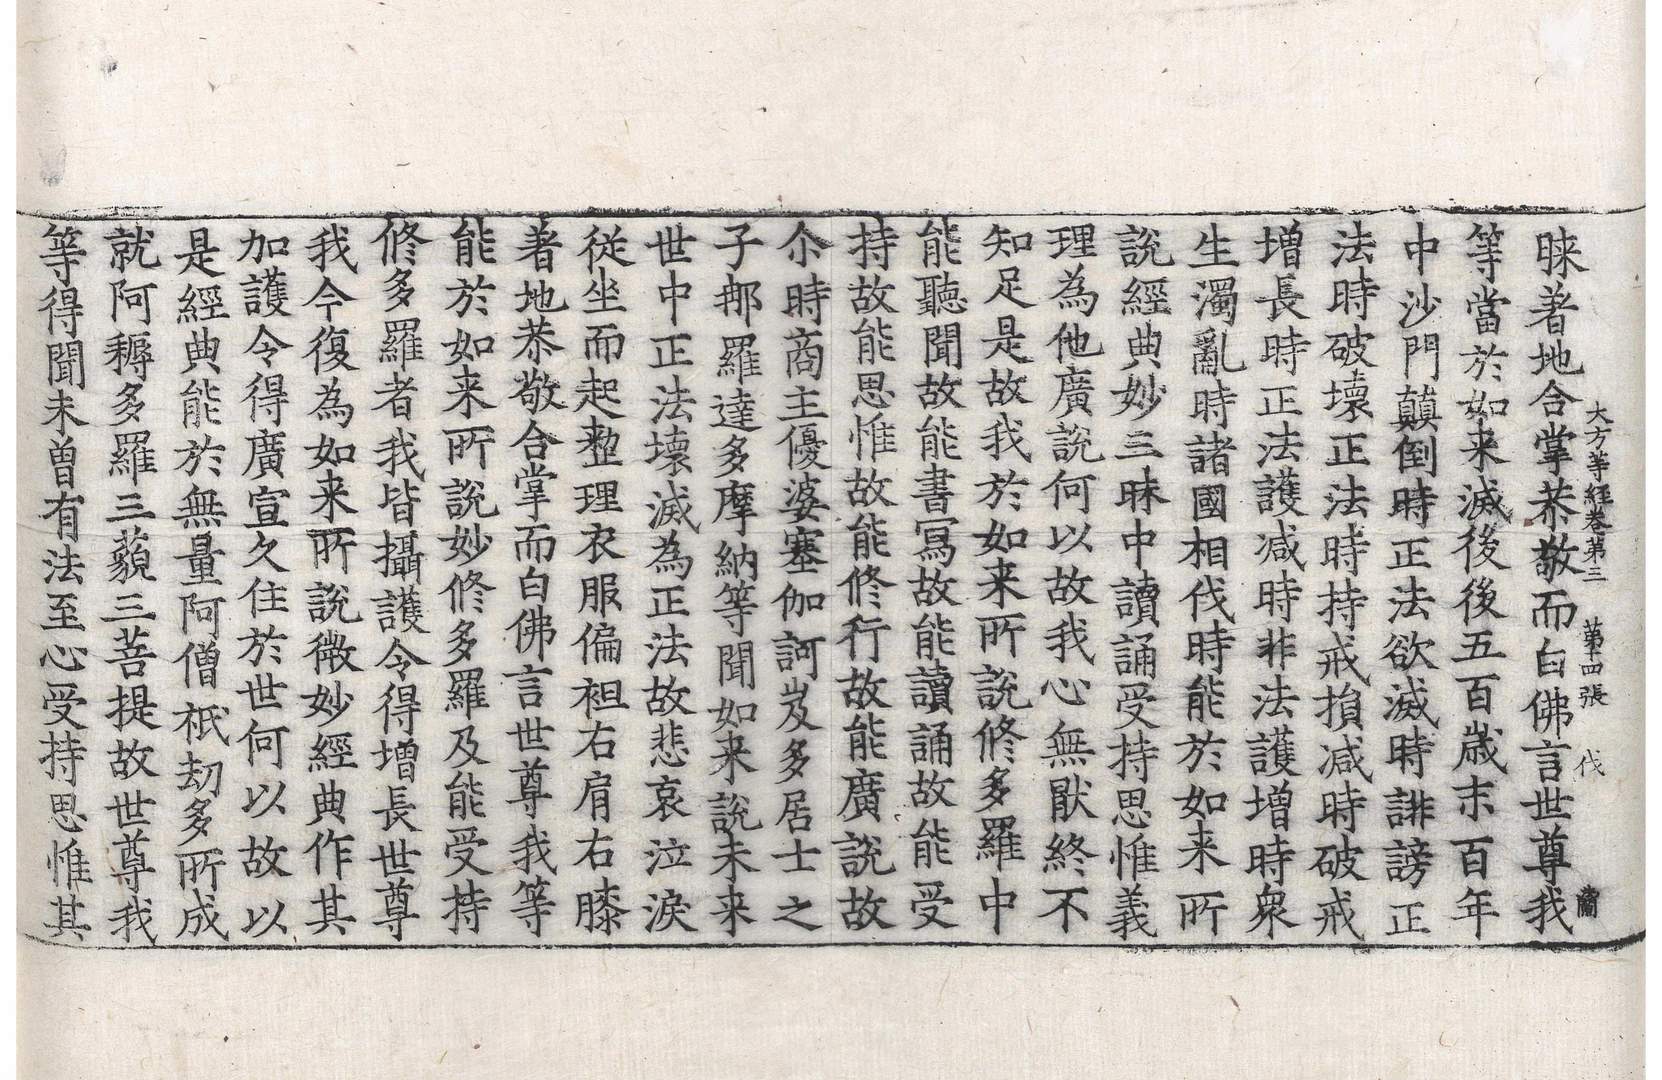 大方等經卷第三 第十四張 伐 蘭
睞著地合掌恭敬而白佛言世尊我
等當於如来滅後後五百歲末百年
中沙門顛倒時正法欲滅時誹謗正
法時破壞正法時持戒損减時破戒
增長時正法護减時非法護增時衆
生濁亂時諸國相伐時能於如来所
說經典妙三昧中讀誦受持思惟義
理為他廣說何以故我心無猒終不
知足是故我於如来所說修多羅中
能聽聞故能書寫故能讀誦故能受
持故能思惟故能修行故能廣說故
尒時商主優婆塞伽訶岌多居士之
子那羅達多摩納等聞如来說未来
世中正法壞滅為正法故悲哀泣淚
從坐而起整理衣服偏袒右肩右膝
著地恭敬合掌而白佛言世尊我等
能於如来所說妙修多羅及能受持
修多羅者我皆攝護令得增長世尊
我今復為如来所說微妙經典作其
加護令得廣宣久住於世何以故以
是經典能於無量阿僧祇劫多所成
就阿耨多羅三藐三菩提故世尊我
等得聞未曾有法至心受持思惟其